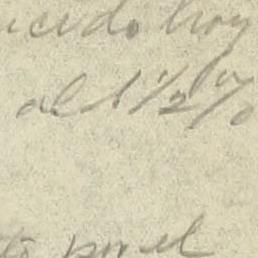 ucido hoy
al 1 1/2 %
to por el